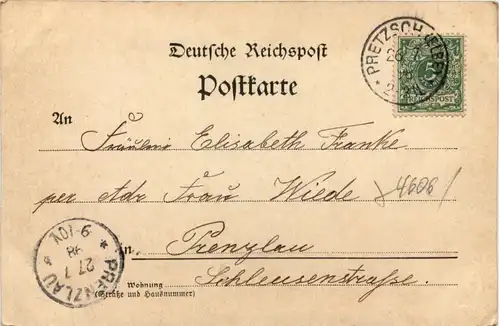 Deutsche Reichspost
Postkarte
PRETZSCH (ELBE)
26 7
5
REICHSPOST
An
Fräulein Elisabeth Franke
per Adr Frau Wiede
4606
in Prenzlau
Schleusenstraße.
Wohnung
(Straße und Hausnummer)
PRENZLAU
27 7
98
9-10V